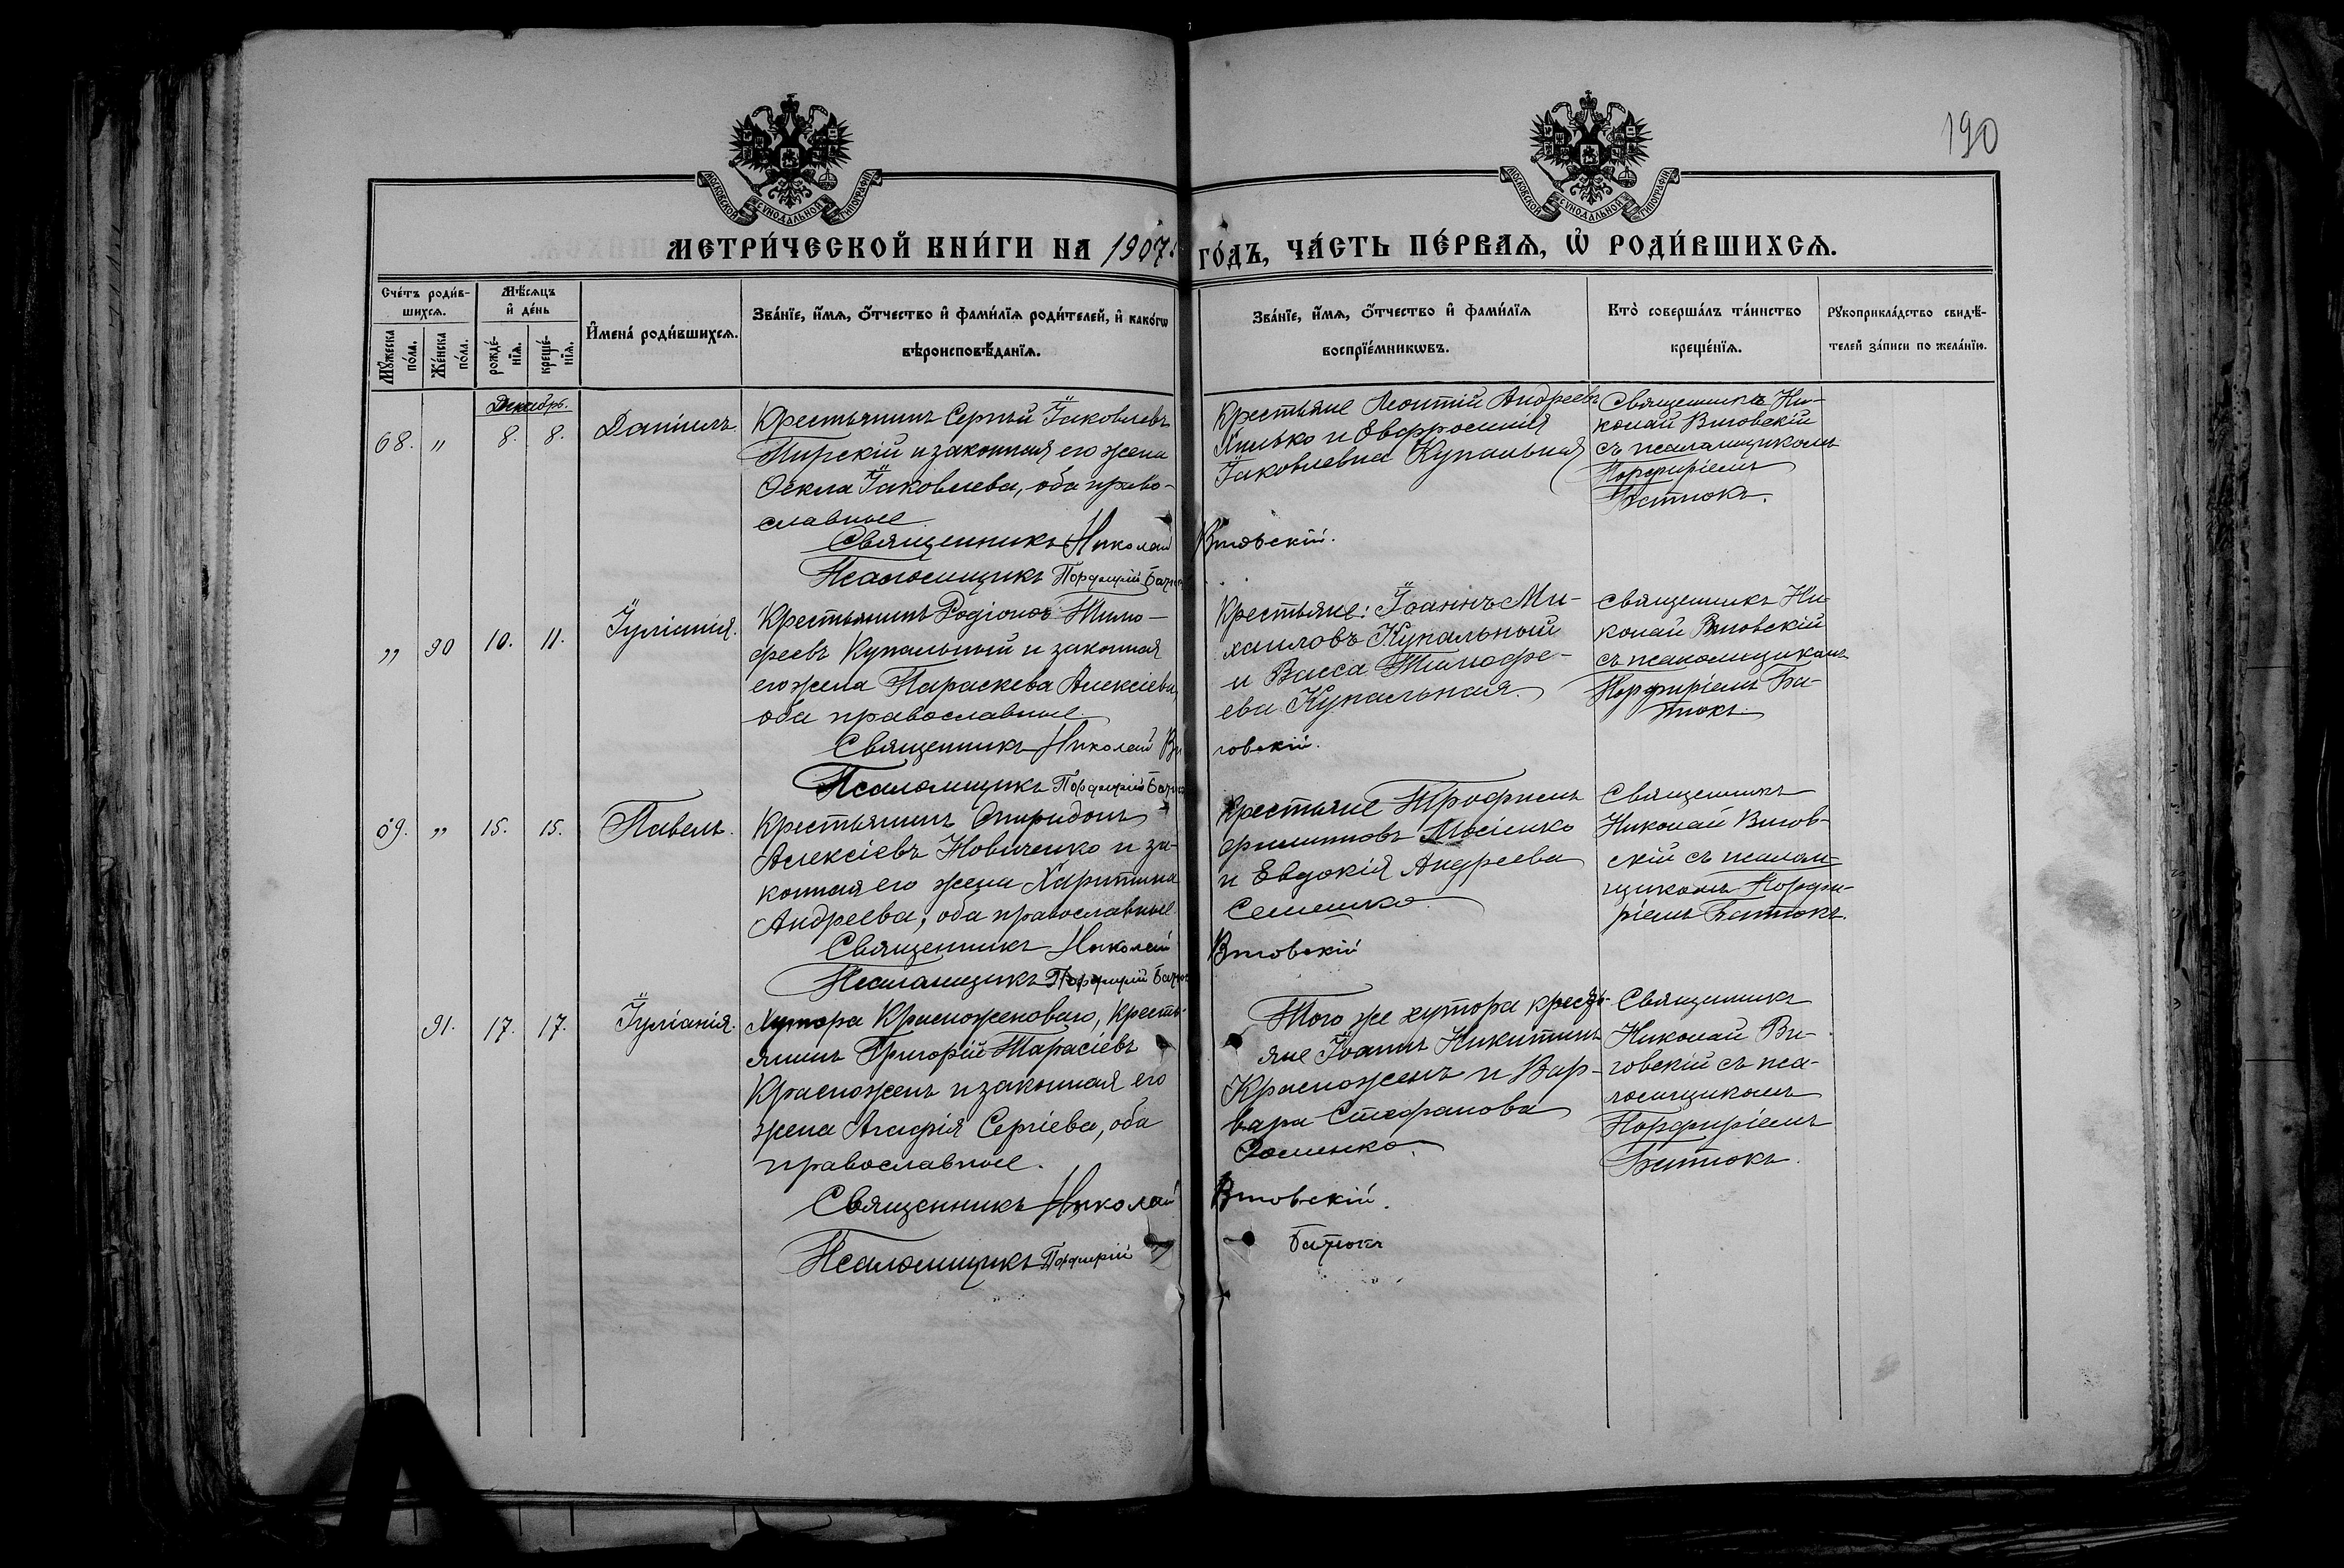 190
МОСКОВСКОЙ СѴНОДАЛЬНОЙ ТИПОГРАФІИ
МОСКОВСКОЙ СѴНОДАЛЬНОЙ ТИПОГРАФІИ
МЕТРИ́ЧЕСКОЙ КНИ́ГИ НА 1907.
ГО́ДЪ, ЧА́СТЬ ПЕ́РВАѦ, Ѽ РОДИ́ВШИХСѦ.
Сче́тъ роди́в-
шихсѧ.
Мꙋ́жеска
по́ла.
Же́нска
по́ла.
Мѣ́сѧцъ
и҆ де́нь
рожде́-
нїѧ.
креще́-
нїѧ.
И҆мена́ роди́вшихсѧ.
Зва́нїе, и҆́мѧ, ѻ҆́тчество и҆ фами́лїѧ роди́телей, и҆ како́гѡ
вѣроисповѣ́данїѧ.
Зва́нїе, и҆́мѧ, ѻ҆́тчество и҆ фами́лїѧ
воспрїе́мникѡвъ.
Кто̀ соверша́лъ та́инство
креще́нїѧ.
Рꙋкоприкла́дство свидѣ́-
телей за́писи по жела́нїю.
Декабрь.
68. „ 8. 8. Даніилъ.
Крестьянинъ Сергѣй Іаковлевъ
Пирскій и законная его жена
Ѳекла Іаковлева, оба право-
славные
Священникъ Николай
Псаломщикъ Порфирій
Крестьяне Леонтій Андреевъ
Хилько и Евфросинія
Іаковлевна Купальная
Священникъ Ни-
колай Виговскій
съ псаломщикомъ
Порфиріемъ
Батюкъ.
Виговскій.
„ 90 10. 11. Іуліанія.
Крестьянинъ Родіонъ Тимо-
феевъ Купальный и законная
его жена Параскева Алексіева,
оба православные
Священникъ Николай Ви
Псаломщикъ Порфирій
Крестьяне: Іоаннъ Ми-
хаиловъ Купальный
и Васса Тимофе-
ева Купальная.
Священникъ Ни-
колай Виговскій
съ псаломщикомъ
Порфиріемъ Ба-
тюкъ.
говскій.
69. „ 15. 15. Павелъ.
Крестьянинъ Спиридонъ
Алексіевъ Новиченко и за-
конная его жена Харитина
Андреева, оба православные
Священникъ Николай
Псаломщикъ Порфирій
Крестьяне Трофимъ
Филипповъ Мосіенко
и Евдокія Андреева
Семешко
Священникъ
Николай Вигов-
скій съ псалом-
щикомъ Порфи-
ріемъ Батюкъ.
Виговскій
91. 17. 17. Іуліанія.
Хутора Красноженоваго, кресть-
янинъ Григорій Тарасіевъ
Красножонъ и законная его
жена Агафія Сергіева, оба
православные.
Священникъ Николай
Псаломщикъ Порфирій
Того же хутора кресть-
яне Іоаннъ Никитинъ
Красножонъ и Вар-
вара Стефанова
Ѳоменко.
Священникъ
Николай Ви-
говскій съ пса-
ломщикомъ
Порфиріемъ
Батюкъ.
Виговскій.
Батюкъ